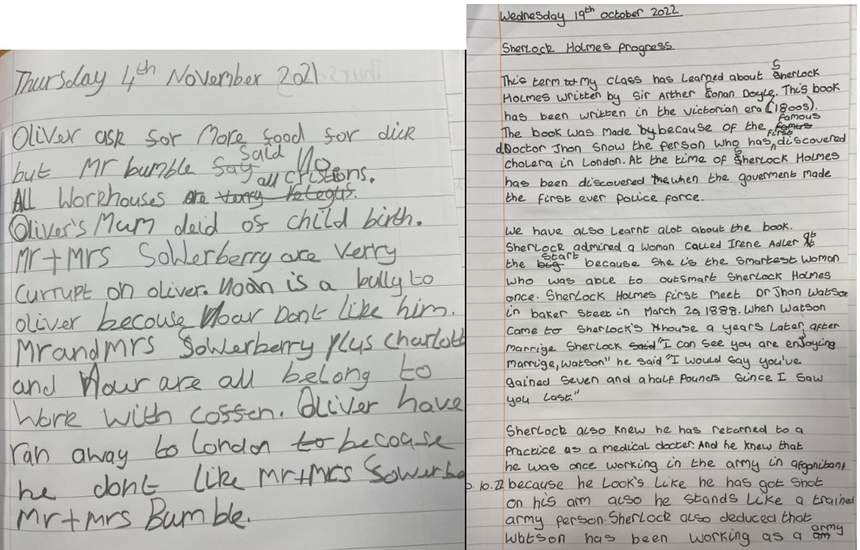 Thursday 4th November 2021
Oliver ask for More food for dick
but Mr bumble say said No
ALL Workhouses are all cristions.
Oliver's Mum deid of child birth.
Mr + Mrs Sowerberry are Verry
currupt on oliver. Noan is a bully to
oliver becouse Nour Dont like him.
Mr and Mrs Sowerberry plus charlott
and Nour are all belong to
Work with coffen. Oliver have
ran away to London to becoase
he dont like Mr+Mrs Sowerbe
Mr+mrs Bumble.
Wednesday 19th october 2022
Sherlock Holmes Progress
This term to my class has Learned about Sherlock
Holmes written by Sir Arther Conan Doyle. This book
has been written in the victorian era (1800s).
The book was made by because of the famous
dDoctor Jhon Snow the person who has first discovered
cholera in London. At the time of Sherlock Holmes
has been discovered the when the goverment made
the first ever Police force.
We have also Learnt alot about the book.
Sherlock admired a woman called Irene Adler at
the big start because She is the Smartest Woman
who was able to outsmart Sherlock Holmes
once. Sherlock Holmes first meet Dr Jhon Watson
in baker Steet in March 20, 1888. When Watson
came to Sherlock's house a years Later after
marrige Sherlock said "I can See you are enjoying
marrige, Watson" he Said "I would Say you've
gained Seven and a half Pounds Since I Saw
you Last."
Sherlock also knew he has returned to a
Practice as a medical docter. And he knew that
he was once working in the army in afganitans
10.22 because he Look's Like he has got Shot
on his arm also he Stands Like a trained
army Person. Sherlock also deduced that
Watson has been working as a am army